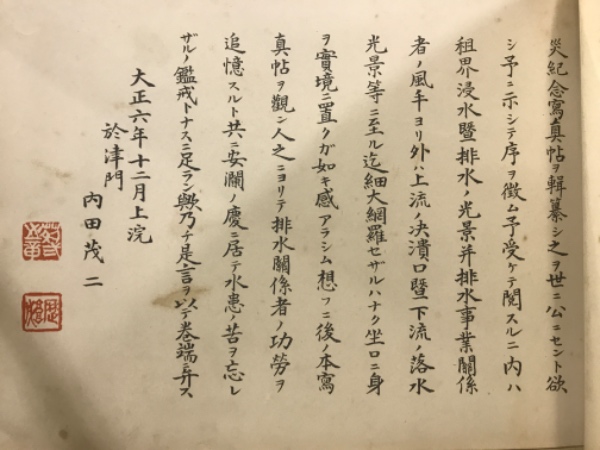 災紀念寫真帖ヲ輯纂シ之ヲ世ニ公ニセント欲
シ予ニ示シテ序ヲ徴ム予受ケテ閲スルニ内ハ
租界浸水曁排水ノ光景并排水事業關係
者ノ風丰ヨリ外ハ上流ノ決潰口曁下流ノ落水
光景等ニ至ル迄細大網羅セザルハナク坐ロニ身
ヲ實境ニ置クガ如キ感アラシム想フニ後ノ本寫
真帖ヲ觀ン人之ニヨリテ排水關係者ノ功勞ヲ
追憶スルト共ニ安瀾ノ慶ニ居テ水患ノ苦ヲ忘レ
ザルノ鑑戒トナスニ足ラン歟乃チ是言ヲ以テ巻端ニ弁ス
大正六年十二月上浣
於津門
内田茂二